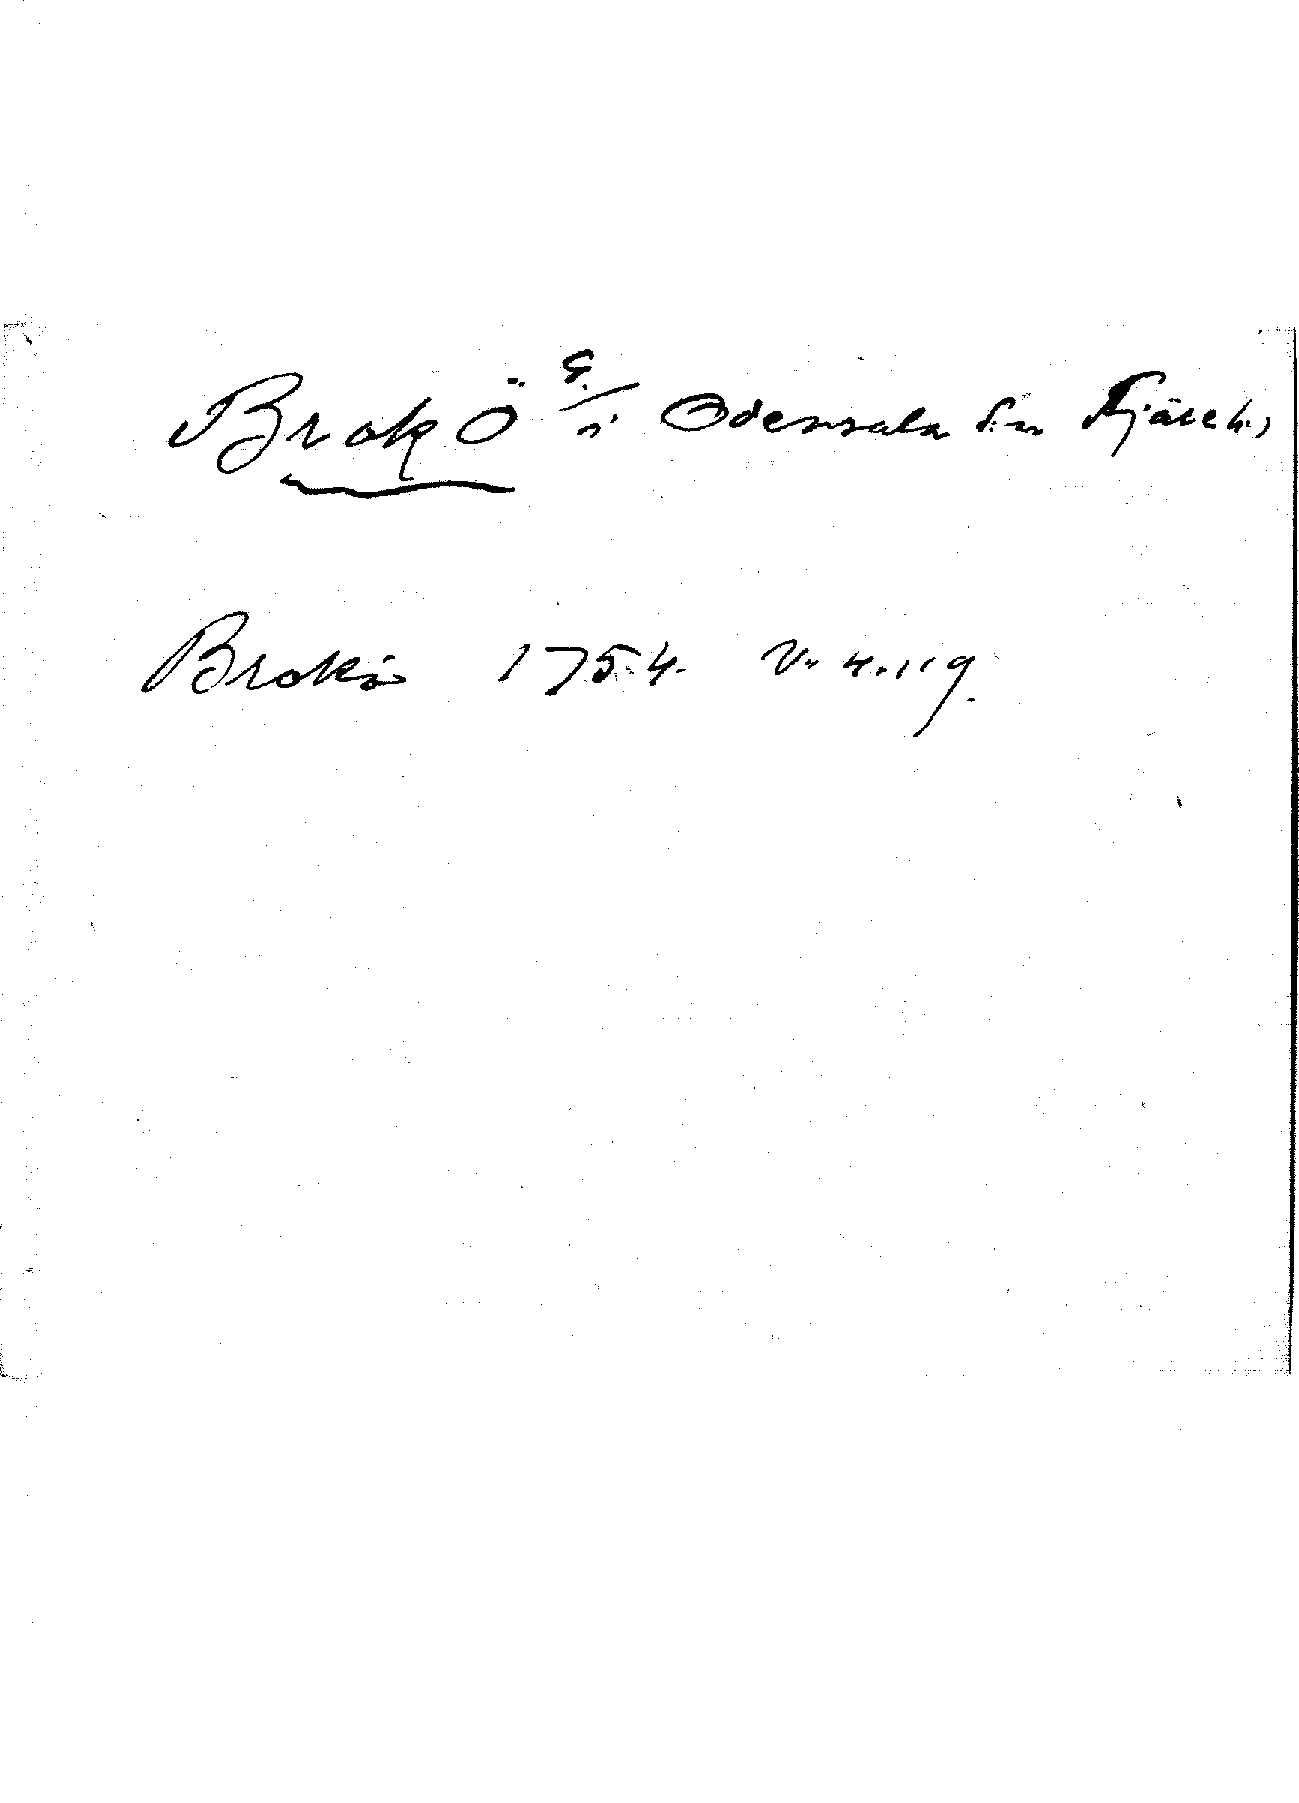 Brokö g. i Odensala s:n
Brokö 1754. V. 4. 119.